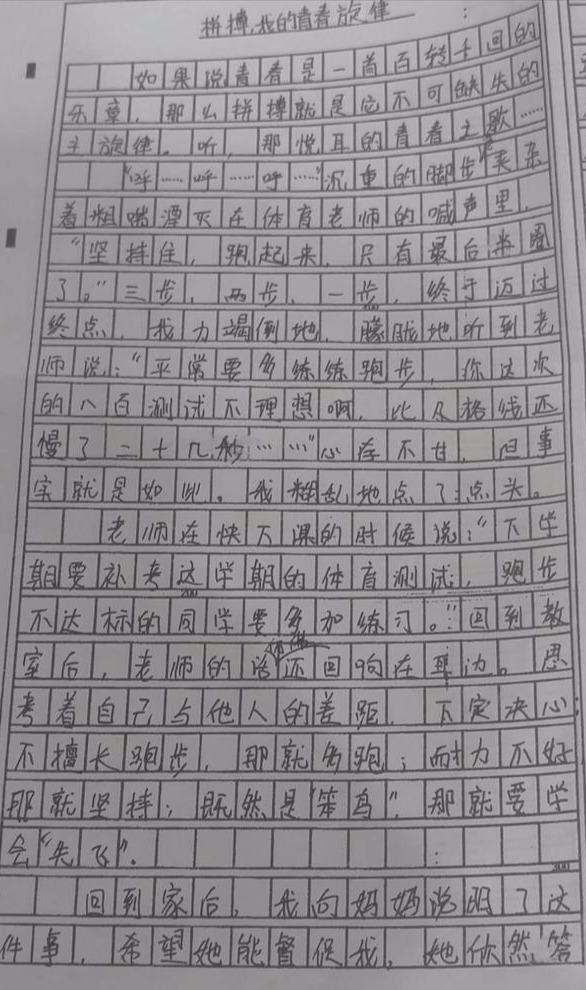 拼搏,我的青春旋律
如果说青春是一首百转千回的
乐章，那么拼搏就是它不可缺失的
主旋律。听，那悦耳的青春主歌……
“呼……呼……呼……”沉重的脚步声夹杂
着粗喘湮灭在体育老师的喊声里，
“坚持住，跑起来，只有最后半圈
了。”三步，两步，一步，终于迈过
终点，我力竭倒地，朦胧地听到老
师说：“平常要多练练跑步，你这次
的八百测试不理想啊，比及格线还
慢了二十几秒……”心存不甘，但事
实就是如此。我糊乱地点了点头。
老师在快下课的时候说：“下学
期要补考这学期的体育测试，跑步
不达标的同学要多加练习。”回到教
室后，老师的话还回响在耳边。思
考着自己与他人的差距，下定决心，
不擅长跑步，那就多跑；耐力不好
那就坚持；既然是“笨鸟”，那就要学
会“先飞”。
300
回到家后，我向妈妈说明了这
件事，希望她能督促我，她欣然答